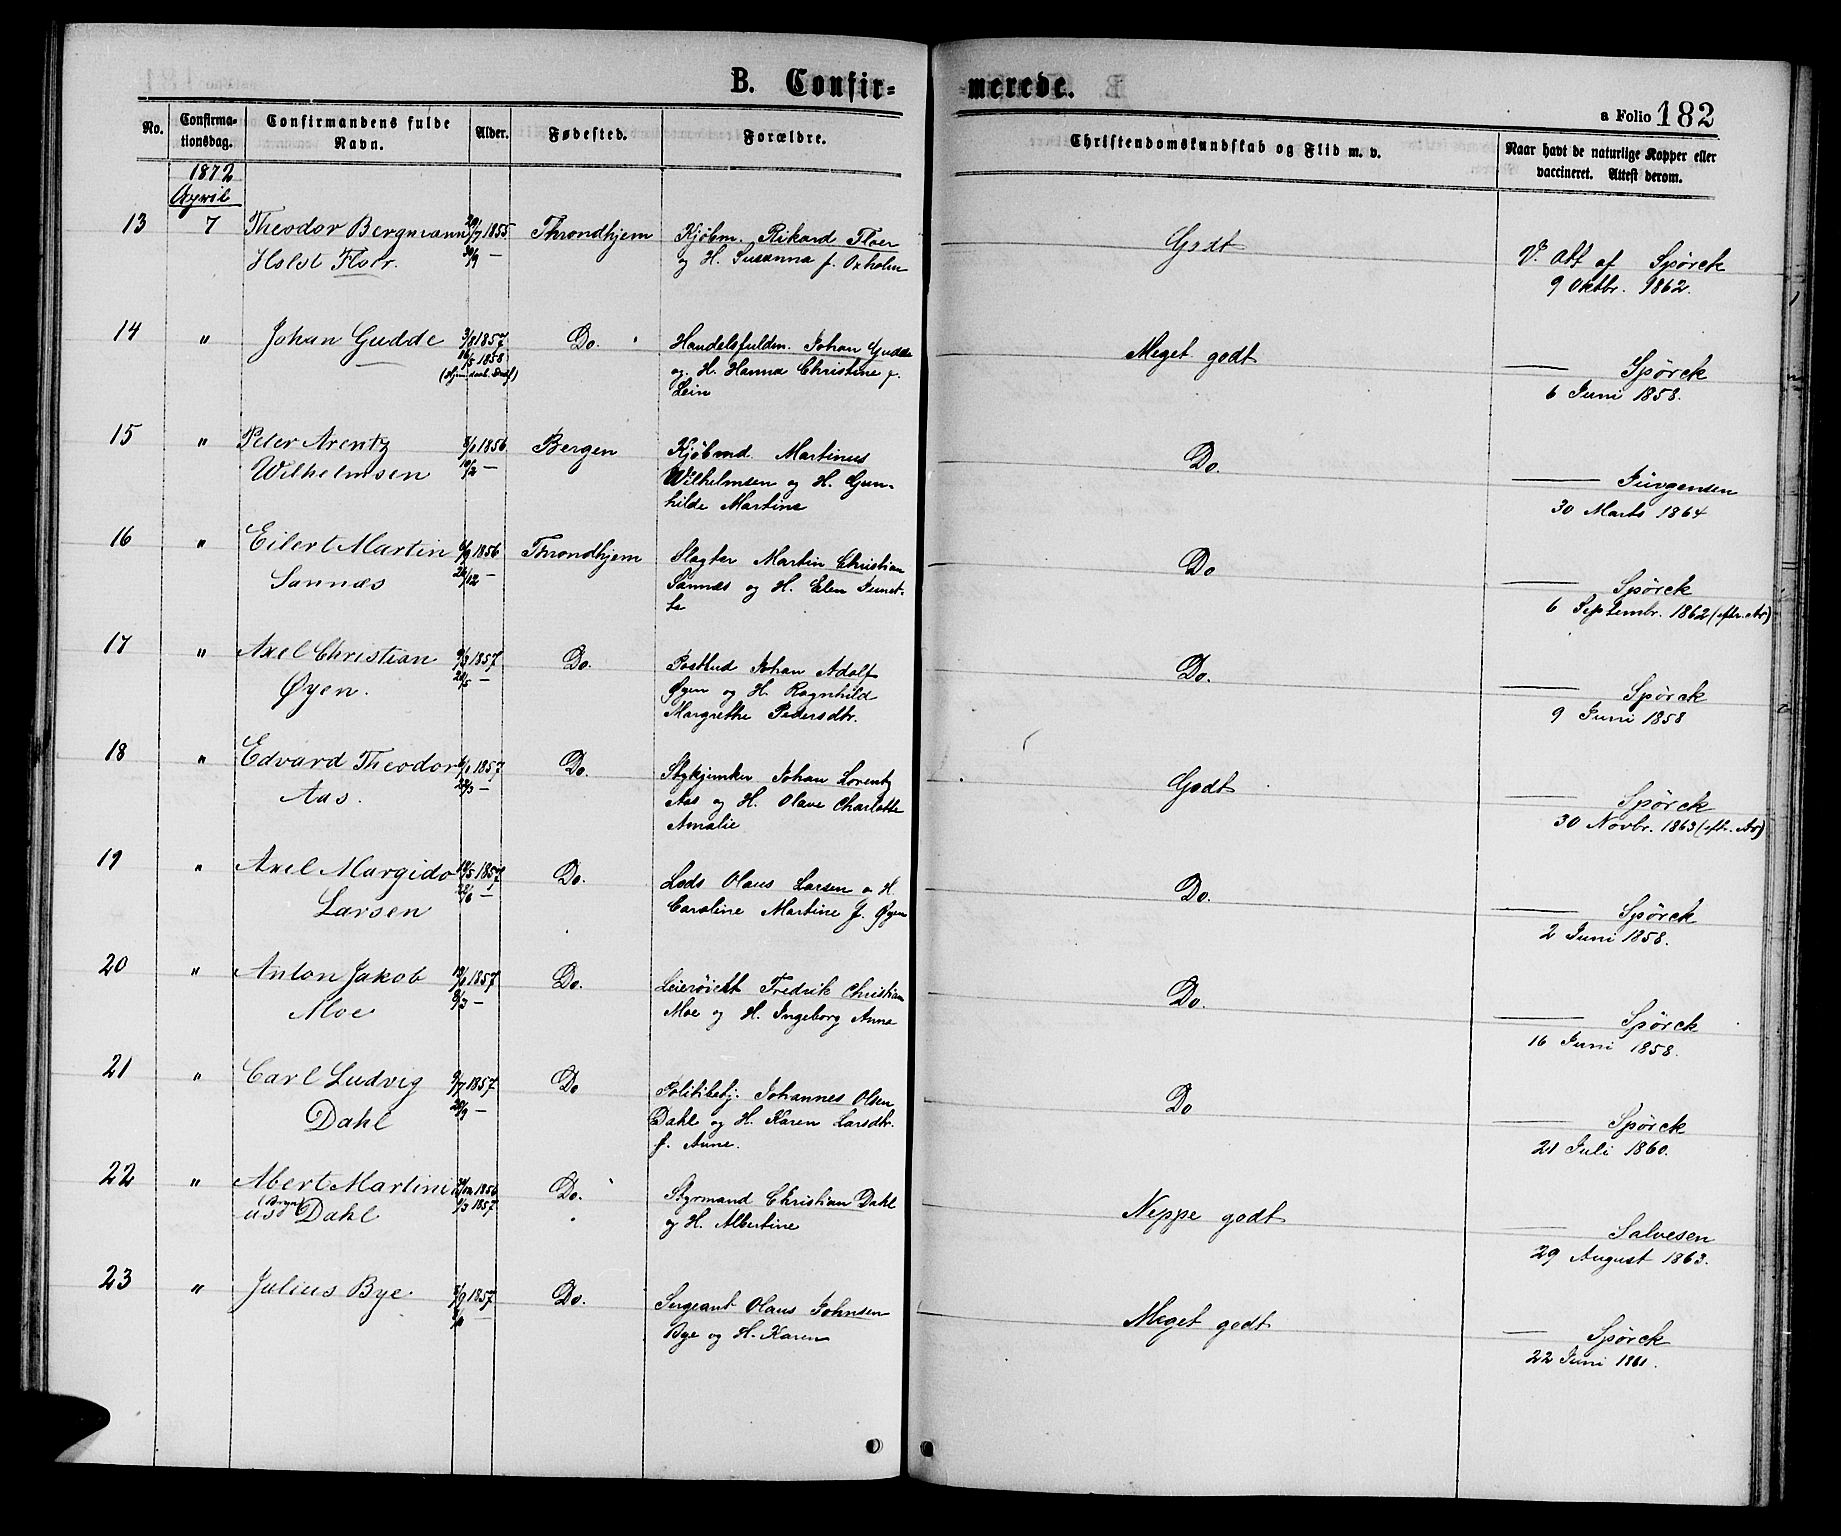 B. Confir-
merede.
a Folio 182
No.
Confirma-
tionsdag.
Confirmandens fulde
Navn.
Alder.
Fødested.
Forældre.
Christendomskundskab og Flid m. v.
Naar havt de naturlige Kopper eller
vaccineret. Attest derom.
1872
April
13 7 Theodor Bergmann 20/7 1855 Throndhjem Kjøbm. Rikard Floer Godt V. Att af Spörck
Holst Floer. 30/9 — og H. Susanna f. Oxholm 9 Oktbr. 1862.
14 " Johan Gudde 3/8 1857 Do. Handelsfuldm. Johan Gudde Meget godt — Spörck
16/5 1858 og H. Hanna Christine f. 6 Juni 1858.
(Hjem. daab. Stadf) Lein
15 " Peter Arentz 8/1 1856 Bergen Kjöbmd. Martinus Do. — Jürgensen
Wilhelmsen 10/2 — Wilhelmsen og H. Gun- 30 Marts 1864
hilde Martine
16 " Eilert Martin 6/9 1856 Throndhjem Slagter Martin Christian Do — Spörck
Sannæs 26/12 — Sannæs og H. Elen Jenset- 6 Septembr. 1862 (eftr. Ar)
te
17 " Axel Christian 9/3 1857 Do. Postbud Johan Adolf Do. — Spörck
Øyen. 21/5 — Øyen og H. Ragnhild 9 Juni 1858
Margrethe Pedersdtr.
18 " Edvard Theodor 6/1 1857 Do. Stykjunker Johan Lorentz Godt — Spörck
Aas. 22/3 — Aas og H. Olave Charlotte 30 Novbr. 1863 (eftr. Ar)
Amalie
19 " Axel Margido 18/5 1857 Do. Lods Olaus Larsen o H. Do. — Spörck
Larsen 22/6 — Caroline Martine f. Øyen 2 Juni 1858.
20 " Anton Jakob 19/1 1857 Do. Leierøielt Fredrik Christian Do. — Spörck
Moe 8/3 — Moe og H. Ingeborg Anna 16 Juni 1858.
21 " Carl Ludvig 9/7 1857 Do Politibetj. Johannes Olsen Do — Spörck
Dahl 20/9 — Dahl og H. Karen Larsdtr. 21 Juli 1860.
f. Aune.
22 " Abert Martini 31/12 1856 Do. Styrmand Christian Dahl Neppe godt — Salvesen
us (Bryn) Dahl 1/3 1857 og H. Albertine 29 August 1863.
23 " Julius Bye 2/9 1857 Do. Sergeant Olaus Johnsen Meget godt — Spörck
Bye og H. Karen 22 Juni 1861.